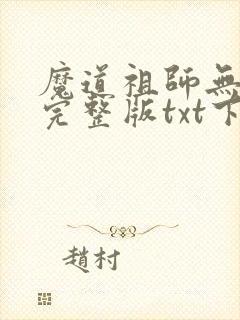 魔道祖師無
完整版txt下
趙村